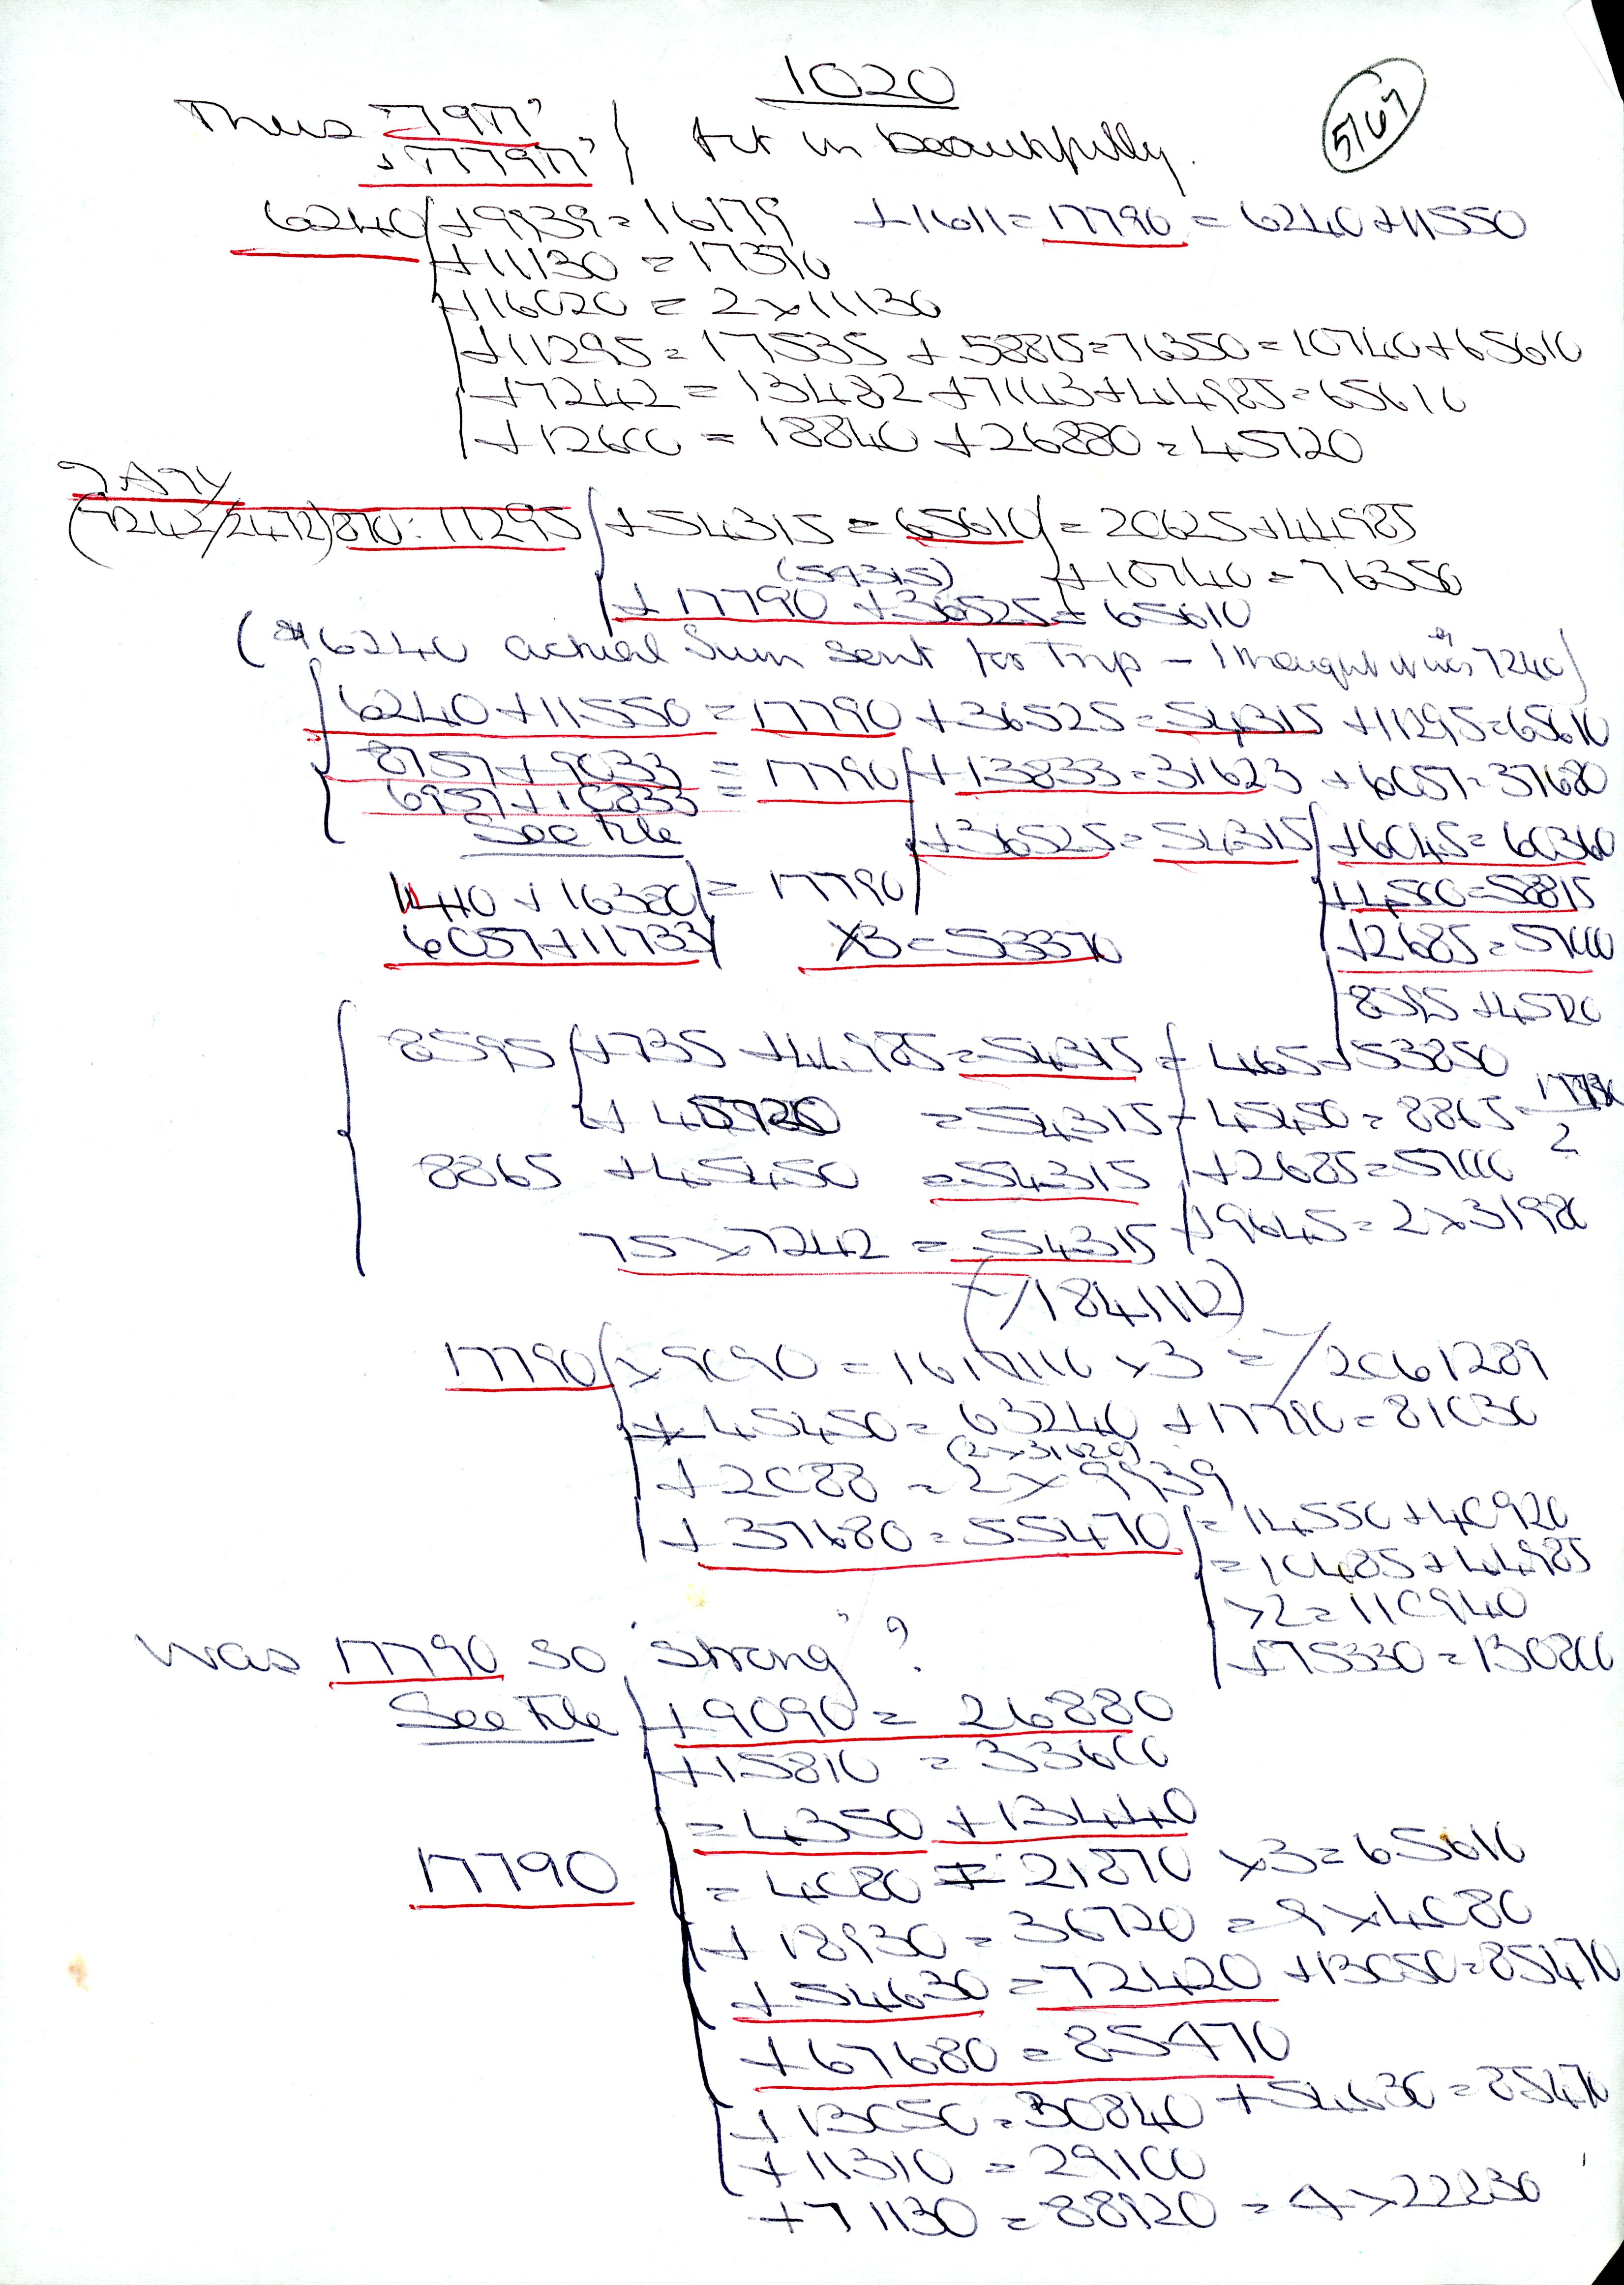 1020
5167
Thus 7797" } fit in beautifully.
+ 77797"
6240 + 9939 = 16179 + 1611 = 17790 = 6240 + 11550
+ 11130 = 17370
+ 16020 = 2 × 11130
+ 11295 = 17535 + 58815 = 76350 = 10740 + 65610
+ 7242 = 13482 + 7143 + 44985 = 65610
+ 12600 = 18840 + 26880 = 45720
(7242/2472) 870: 11295 + 54315 = 65610 = 20625 + 44985
(54315) + 10740 = 76350
+ 17790 + 36525 = 65610
(6240 actual Sum sent for Trip – I thought it was 7240)
6240 + 11550 = 17790 + 36525 = 54315 + 11295 = 65610
8757 + 9033 = 17790 + 13833 = 31623 + 6057 = 37680
6957 + 10833 =
See File + 36525 = 54315 + 6045 = 60360
1410 + 16380 = 17790 + 4500 = 58815
6057 + 11733 ×3 = 53370 + 2685 = 57000
8595 + 45720
8595 + 735 + 44985 = 54315 = 465 + 53850
+ 45720 = 54315 - 45450 = 8865 = 17730
2
8865 + 45450 = 54315 + 2685 = 57000
75 × 7242 = 54315 + 9645 = 2 × 31980
(-/1841112)
17790 × 9090 = 16171110 × 3 = -/2061289
+ 45450 = 63240 + 17790 = 81030
(2 × 31620)
+ 2088 = 2 × 9939
+ 37680 = 55470 = 14550 + 40920
= 10485 + 44985
×2 = 110940
+ 75330 = 130800
Was 17790 so "strong"?
See File + 9090 = 26880
+ 15810 = 33600
= 4350 + 13440
17790 = 4080 ∓ 21870 ×3 = 65610
+ 18930 = 36720 = 9 × 4080
+ 54630 = 72420 + 13050 = 85470
+ 67680 = 85470
+ 13050 = 30840 + 54630 = 85470
+ 11310 = 29100
+ 71130 = 88920 = 4 × 22230